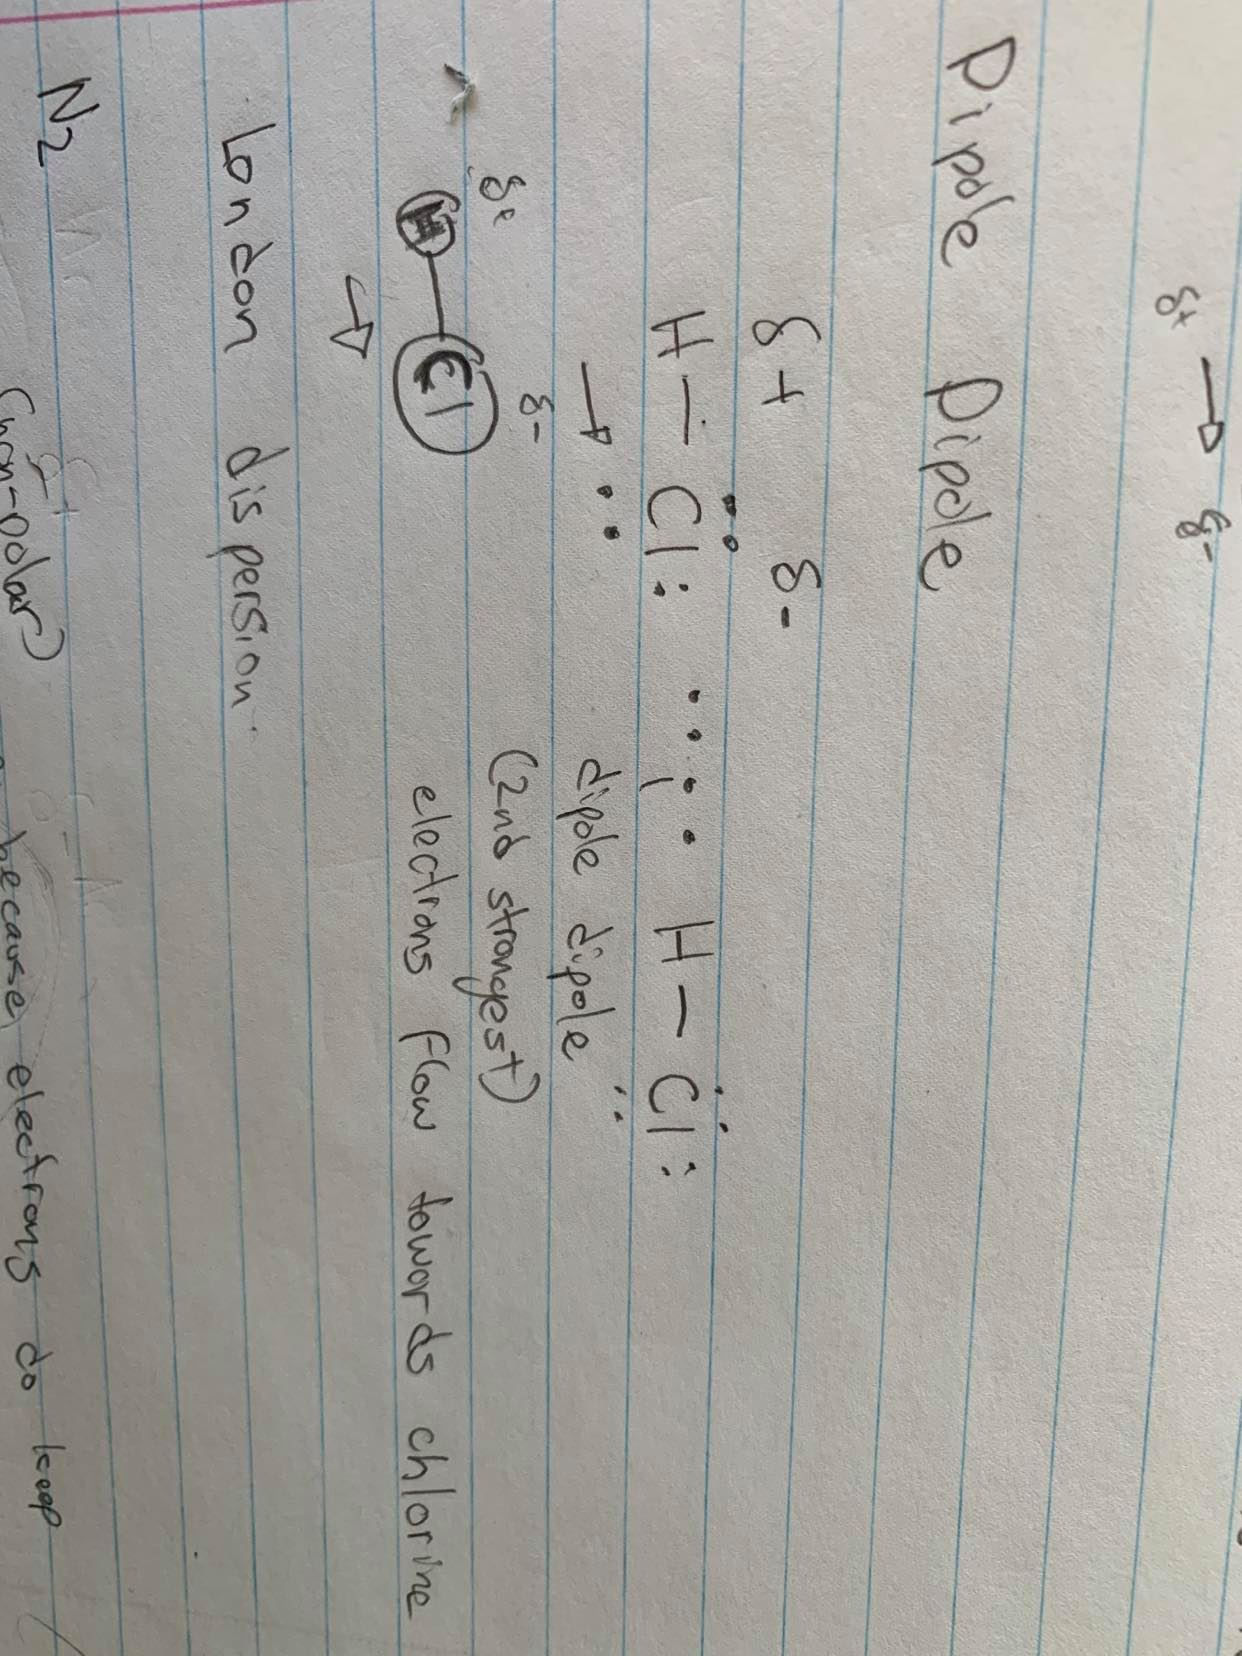 δ+ → δ-
Dipole Dipole
δ+ δ-
H - Cl: .... H - Cl:
→ dipole dipole
δ+ δ- (2nd strongest)
H-Cl electrons flow towards chlorine
→
London dispersion
N2
(non-polar) because electrons do keep